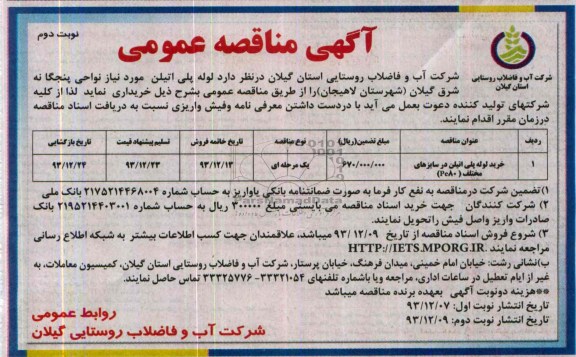 نوبت دوم
آگهی مناقصه عمومی
شرکت آب و فاضلاب روستایی
استان گیلان
شرکت آب و فاضلاب روستایی استان گیلان درنظر دارد لوله پلی اتیلن مورد نیاز نواحی پنجگا نه
شرق گیلان (شهرستان لاهیجان)را از طریق مناقصه عمومی بشرح ذیل خریداری نماید لذا از کلیه
شرکتهای تولید کننده دعوت بعمل می آید با دردست داشتن معرفی نامه وفیش واریزی نسبت به دریافت اسناد مناقصه
درزمان مقرر اقدام نمایند.
ردیف عنوان مناقصه مبلغ تضمین(ریال) نوع مناقصه تاریخ خاتمه فروش تسلیم پیشنهاد قیمت تاریخ بازگشایی
۱ خرید لوله پلی اتیلن در سایزهای مختلف (Pe۸۰) ۶۷۰/۰۰۰/۰۰۰ یک مرحله ای ۹۳/۱۲/۱۳ ۹۳/۱۲/۲۳ ۹۳/۱۲/۲۴
۱)تضمین شرکت درمناقصه به نفع کار فرما به صورت ضمانتنامه بانکی یاواریز به حساب شماره ۲۱۷۵۲۱۴۴۶۸۰۰۴ بانک ملی
۲) شرکت کنندگان جهت خرید اسناد مناقصه می بایستی مبلغ ۳۰۰۰۰۰ ریال به حساب شماره ۲۱۹۵۲۱۴۴۰۳۰۰۱ بانک
صادرات واریز واصل فیش راتحویل نمایند.
۳) شروع فروش اسناد مناقصه از تاریخ ۹۳/۱۲/۰۹ میباشد، علاقمندان جهت کسب اطلاعات بیشتر به شبکه اطلاع رسانی
مراجعه نمایند .HTTP://IETS.MPORG.IR
ب)نشانی رشت: خیابان امام خمینی، میدان فرهنگ، خیابان پرستار، شرکت آب و فاضلاب روستایی استان گیلان، کمیسیون معاملات، به
غیر از ایام تعطیل در ساعات اداری، مراجعه ویا باشماره تلفنهای ۳۳۳۲۱۰۵۴-۳۳۳۲۵۷۷۶ تماس حاصل نمایند.
**هزینه دونوبت آگهی بعهده برنده مناقصه میباشد
تاریخ انتشار نوبت اول: ۹۳/۱۲/۰۷
تاریخ انتشار نوبت دوم: ۹۳/۱۲/۰۹
روابط عمومی
شرکت آب و فاضلاب روستایی گیلان